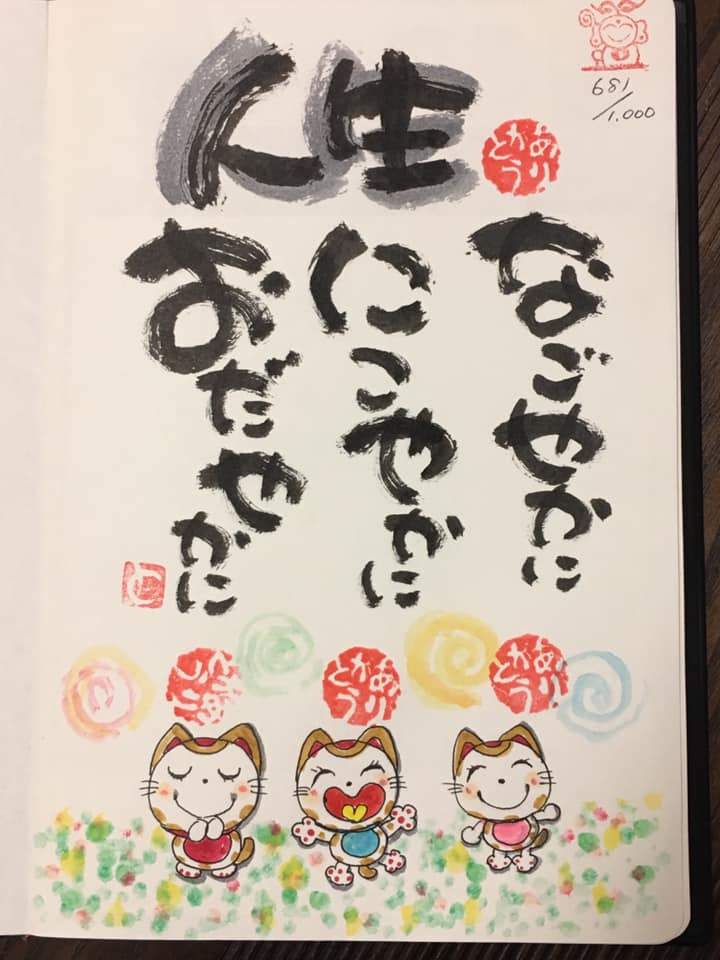 人生
なごやかに
にこやかに
おだやかに
ありがとう
681/1.000
ありがとう
ありがとう
ありがとう